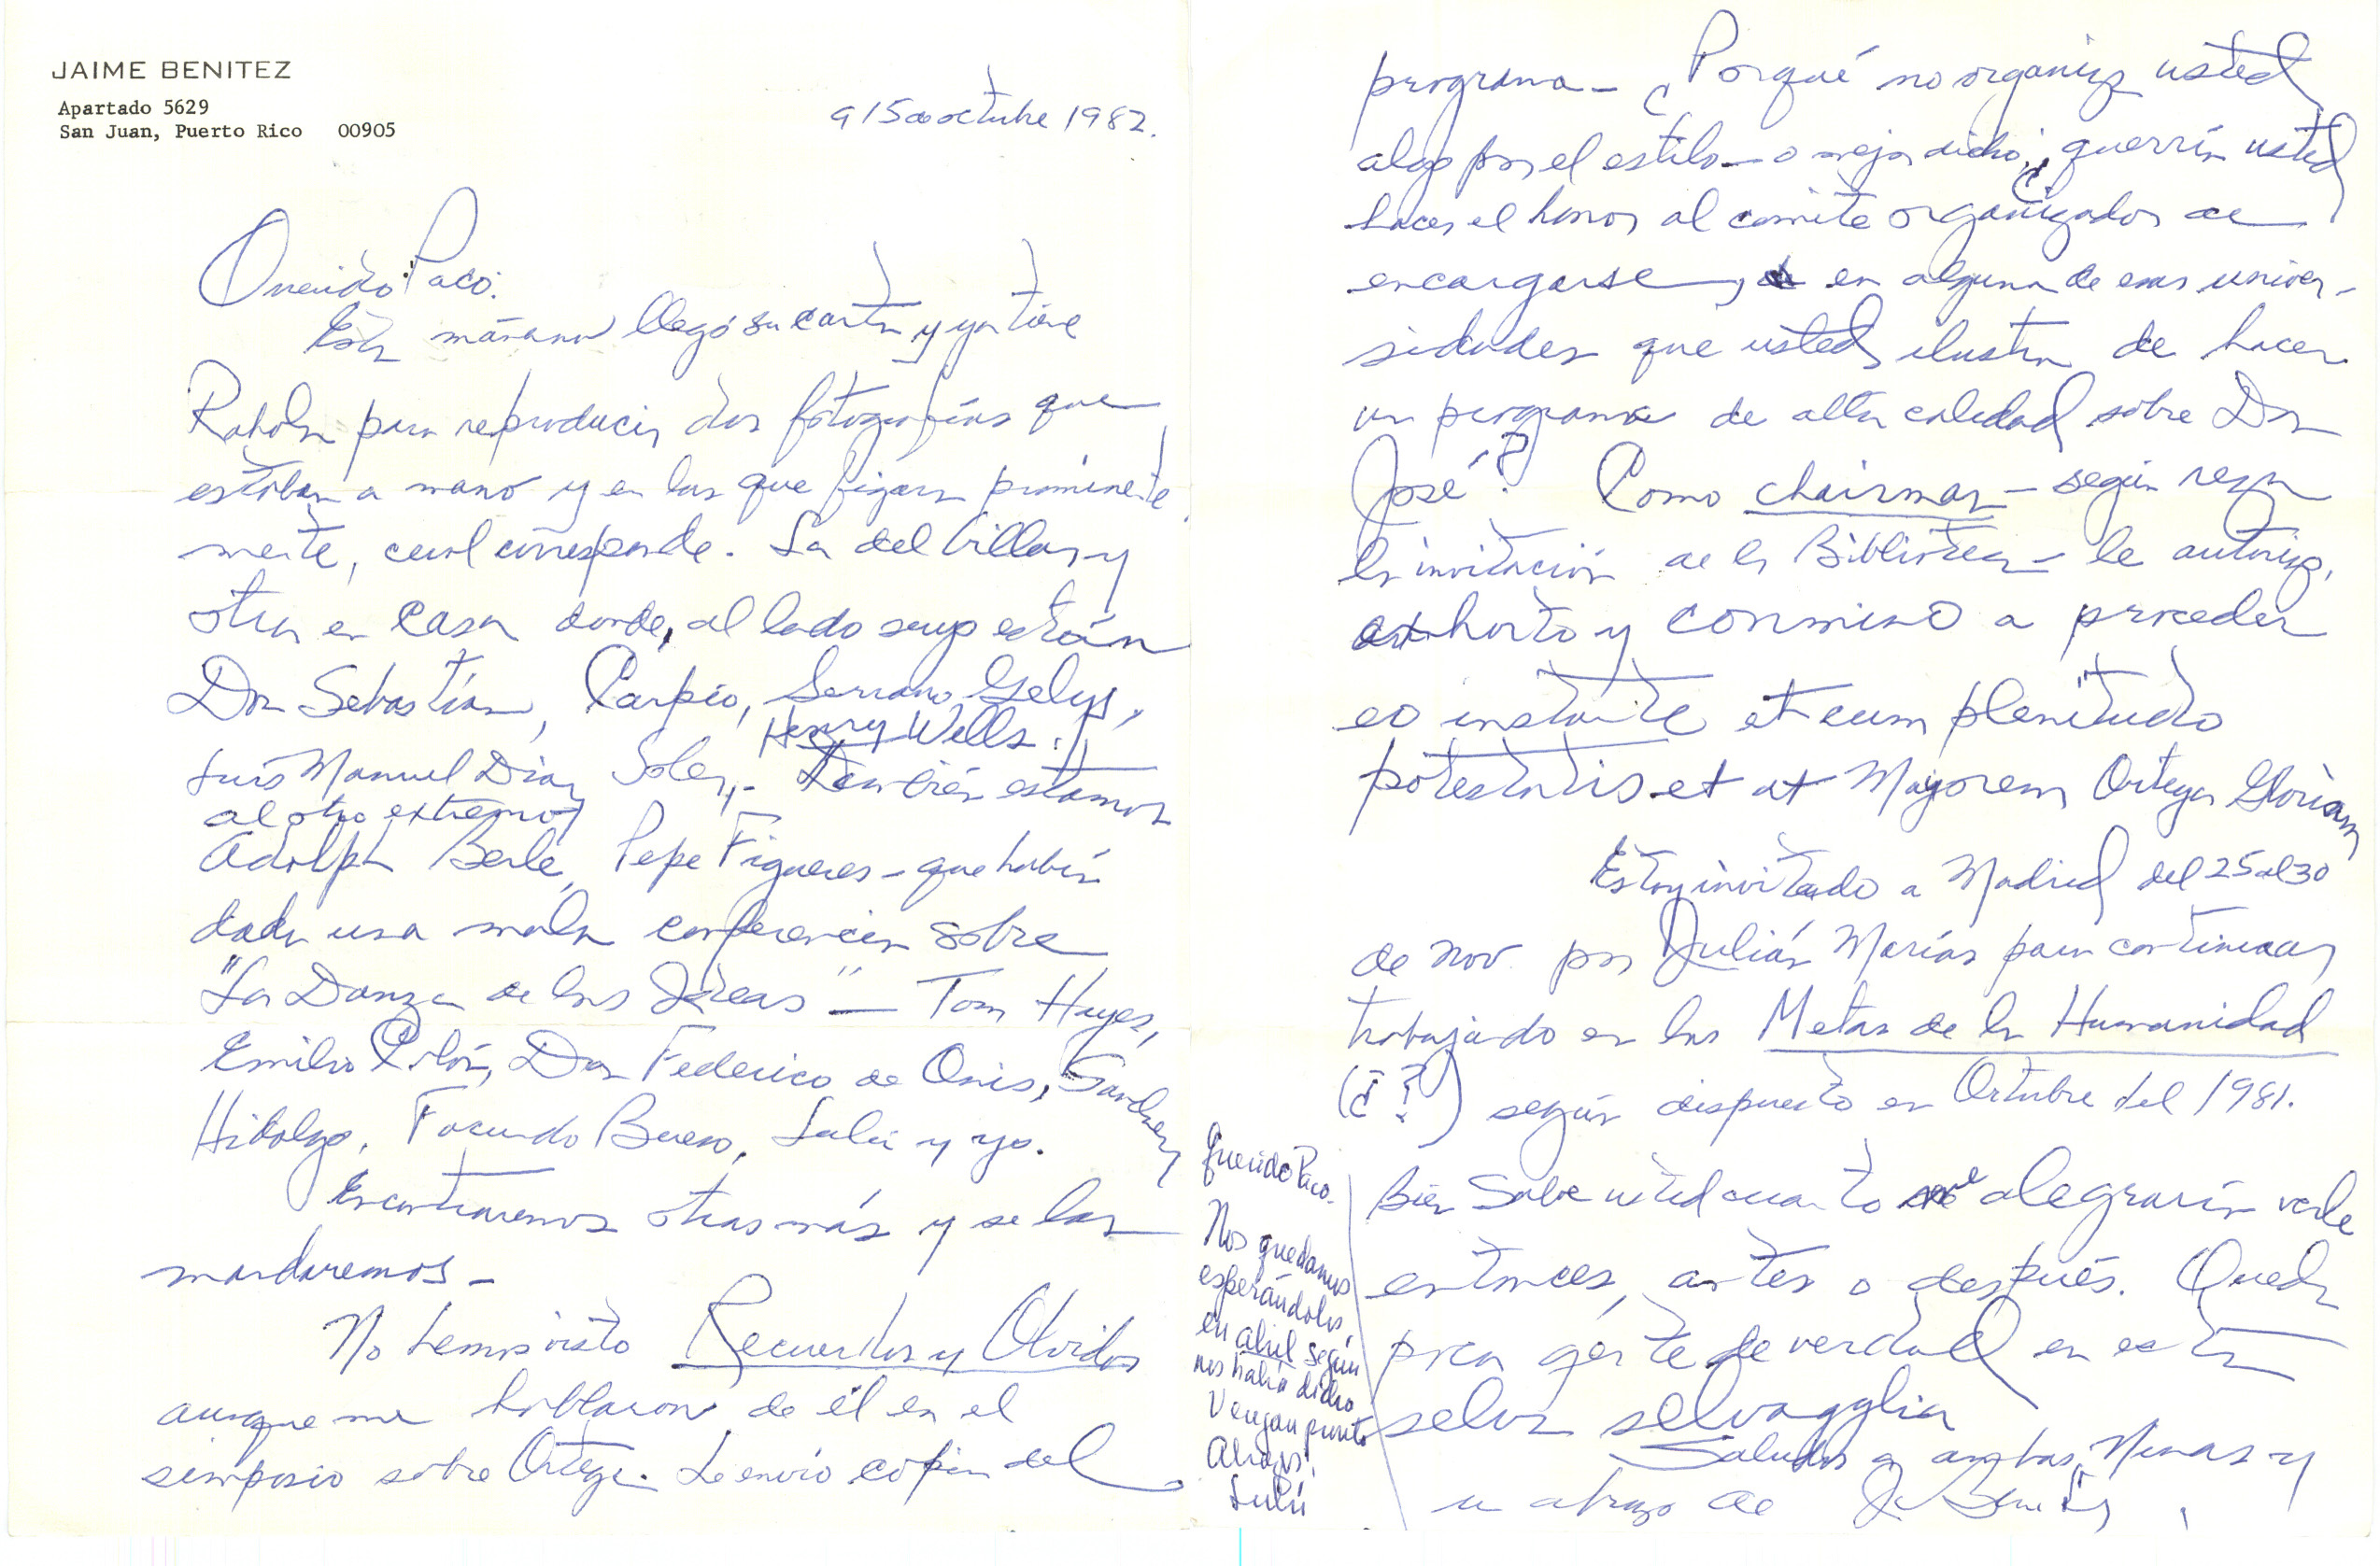 JAIME BENITEZ
Apartado 5629
San Juan, Puerto Rico 00905
a 15 de octubre 1982.
Querido Paco:
Esta mañana llegó su carta y ya tiene
para reproducir dos fotografías que
estaban a mano y en las que figura prominente
mente, cual corresponde. La del Villar y
otra en casa donde, al lado suyo están
Don Sebastián, Carpio, Serrano Gelys,
Henry Wells.
Luis Manuel Díaz Soler, - También estamos
al otro extremo
Adolph Berle, Pepe Figueres - que había
dado una mala conferencia sobre
"La Danza de las Ideas" — Tom Hayes,
Emilio Colón, Don Federico de Onis, Sanchez
Hidalgo, Facundo Bueso, Lulu y yo.
Encontraremos otras más y se las
mandaremos -
No hemos visto Recuerdos y Olvidos
aunque me hablaron de él en el
simposio sobre Ortega. Le envío copia del
programa - ¿Porqué no organiza usted
algo por el estilo - o mejor dicho, ¿querría usted
hacer el honor al comite organizador de
encargarse, en alguna de esas univer-
sidades que usted ilustra de hacer
un programa de alta calidad sobre Don
José? Como chairman - según reza
la invitación de la Biblioteca - le autorizo,
exhorto y conmino a proceder
eo instante et cum plenitudo
potestatis et at Mayorem Ortega Gloriam
Estoy invitado a Madrid del 25 al 30
de nov. por Julián Marías para continuar
trabajando en las Metas de la Humanidad
(¿!?) según dispuesto en Octubre del 1981.
Bien sabe usted cuanto me alegraría verle
entonces, antes o después. Queda
poca gente de verdad en esta
selva selvagglia
Saludos a ambas Ninas y
un abrazo de J. Benítez
Querido Paco.
Nos quedamos
esperándolos
en abril según
nos había dicho
Vengan pronto
Abrazos,
Lulú